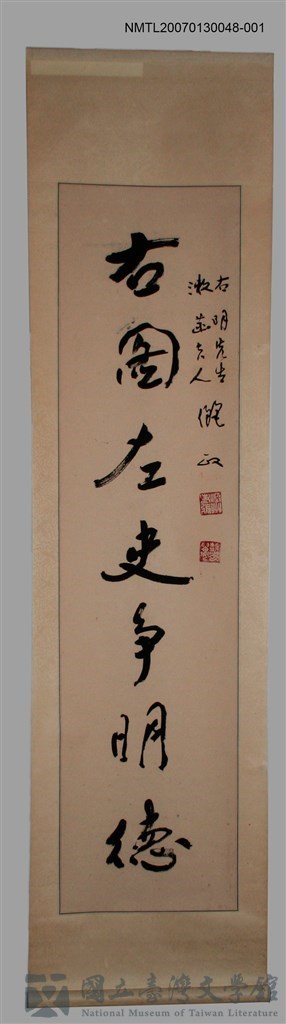 NMTL20070130048-001
右明先生
漱菡夫人 儷政
右圖左史爭明德
國立臺灣文學館
National Museum of Taiwan Literature